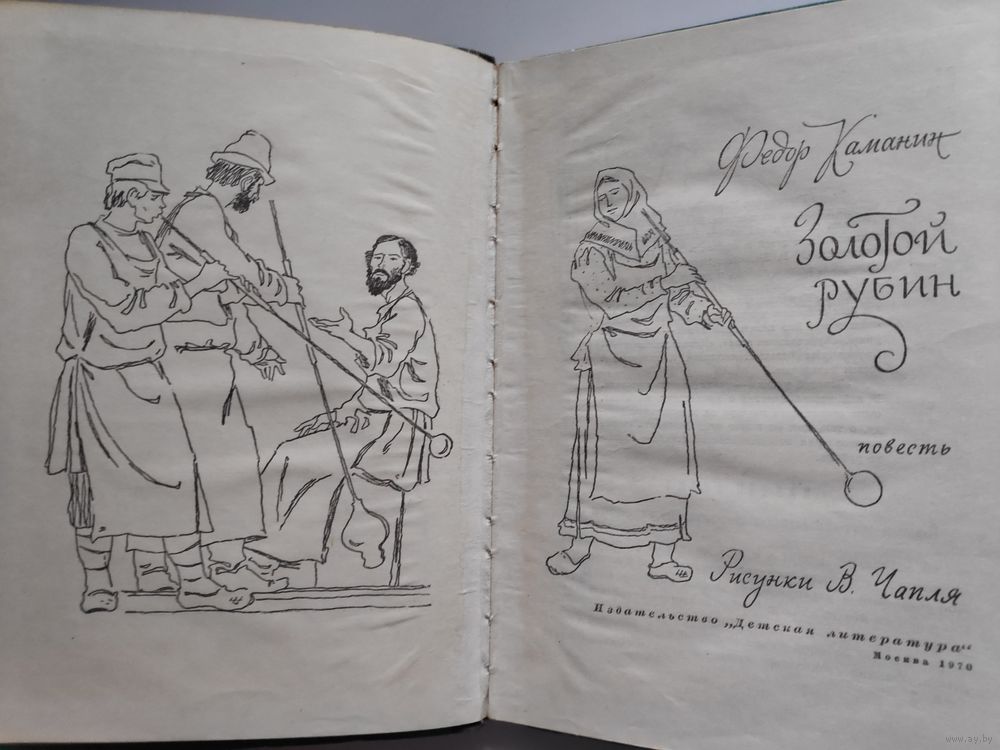 Федор Каманин
Золотой
рубин
повесть
Рисунки В. Чапля
Издательство „Детская литература“
Москва 1970
www.ay.by